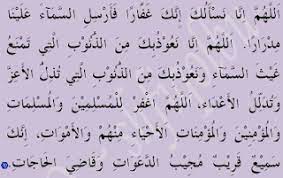 اَللّٰهُمَّ اِنَّا نَسْأَلُكَ اِنَّكَ غَفَّارًا فَأَرْسِلِ السَّمَآءَ عَلَيْنَا
مِدْرَارًا. اَللّٰهُمَّ اِنَّا نَعُوْذُبِكَ مِنَ الذُّنُوْبِ الَّتِي تَمْنَعُ
غَيْثَ السَّمَآءِ وَنَعُوْذُبِكَ مِنَ الذُّنُوْبِ الَّتِي تُذِلُّ الْأَعِزَّ
وَتُدَلِّلُ الْأَعْدَاءَ، اَللّٰهُمَّ اغْفِرْ لِلْمُسْلِمِيْنَ وَالْمُسْلِمَاتِ
وَالْمُؤْمِنِيْنَ وَالْمُؤْمِنَاتِ الْأَحْيَاءِ مِنْهُمْ وَالْأَمْوَاتِ، اِنَّكَ
سَمِيْعٌ قَرِيْبٌ مُجِيْبُ الدَّعَوَاتِ وَقَاضِيَ الْحَاجَاتِ.